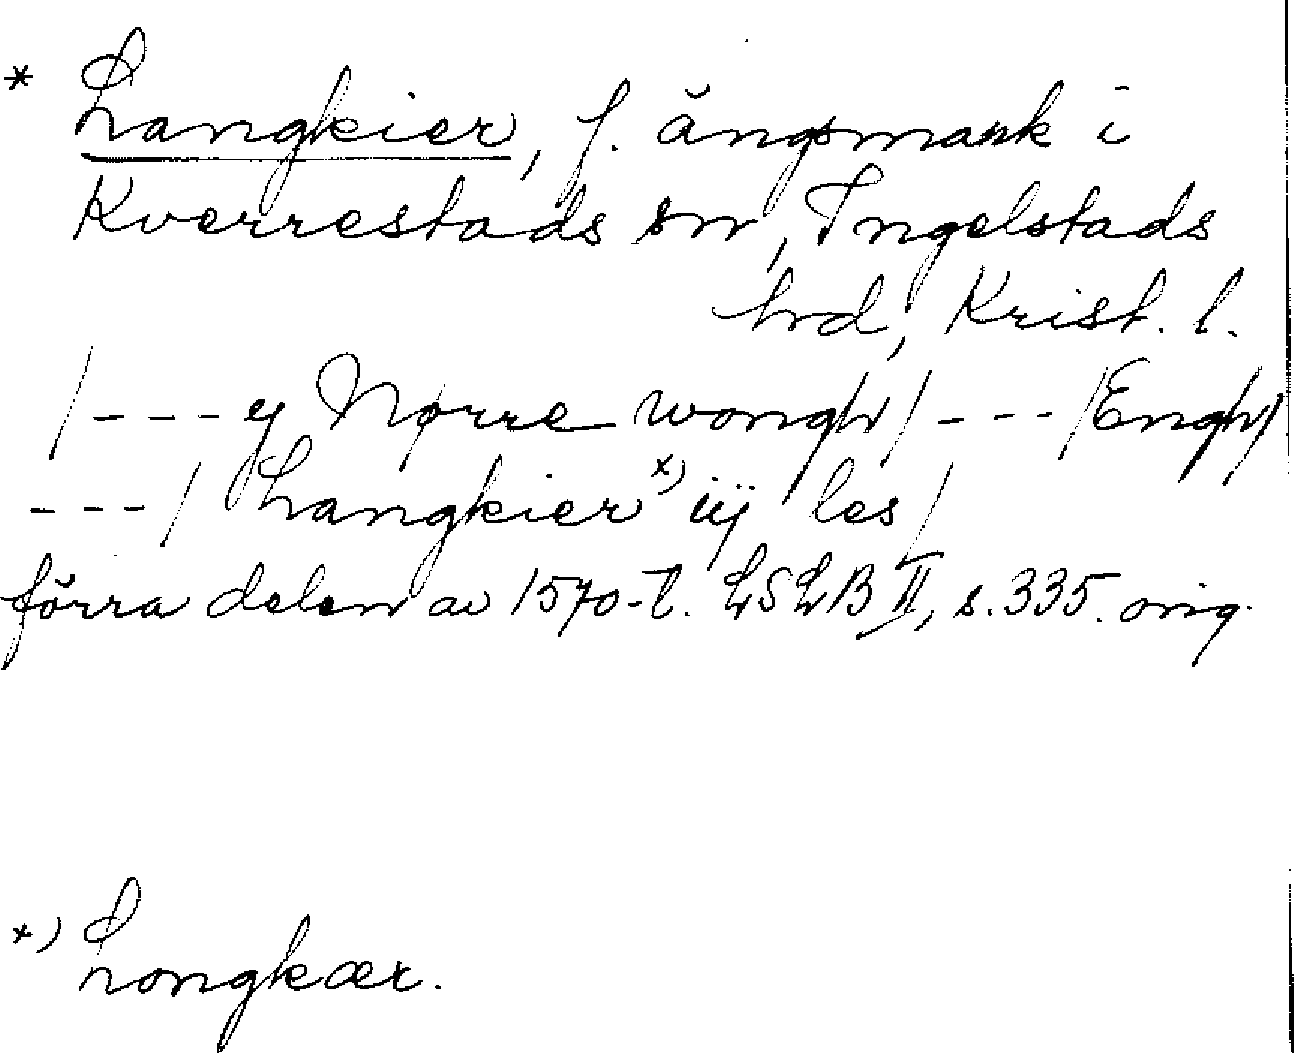 * Langkier, f. ängsmark i
Kverrestads sn, Ingelstads
hrd, Krist. l.
/---y Nørre wongh/---/Engh/
---/ Langkier x) iij les/
förra delen av 1570-t. LSLB II, s. 335. orig.
x) Longkær.